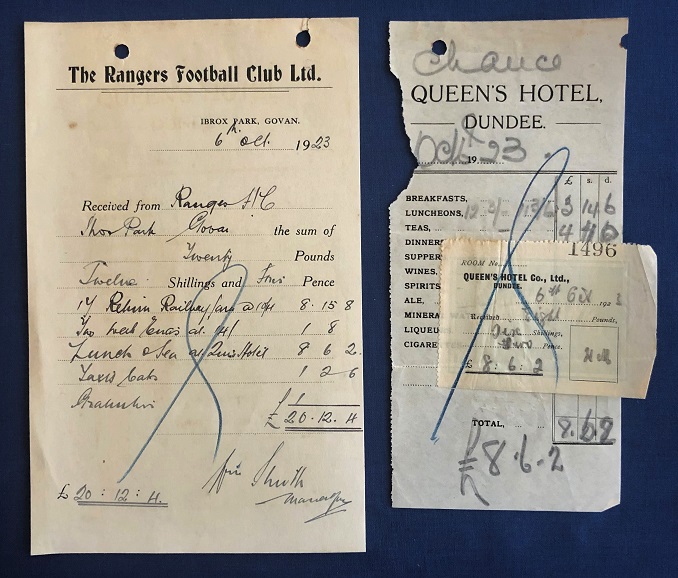 The Rangers Football Club Ltd.
IBROX PARK, GOVAN.
6th Oct. 1923
Received from Rangers F/C
Ibrox Park Govan the sum of
Twenty Pounds
Twelve Shillings and Four Pence
17 Return Railway fare @ 10/4 8 . 15 8
Two week ends at 14/ 1 8
Lunch & Tea at Queens Hotel 8 6 2.
Taxi Cabs 1 2 6
Gratuities 1
£ 20 . 12 . 4
£ 20 : 12 : 4.
Wm Struth
Manager
QUEEN'S HOTEL,
DUNDEE.
Oct 6 19 23
£ s. d.
BREAKFASTS,
LUNCHEONS, 3 14 6
TEAS, 4
DINNER
SUPPER
WINES,
SPIRITS
ALE,
MINERA
LIQUEU
CIGARE
TOTAL, 8. 6 2
£8 . 6 . 2
1496
ROOM No.
QUEEN'S HOTEL Co., Ltd.,
DUNDEE.
6th Oct 192
Received Eight Pounds,
Six Shillings,
Two Pence.
£ 8 : 6 : 2